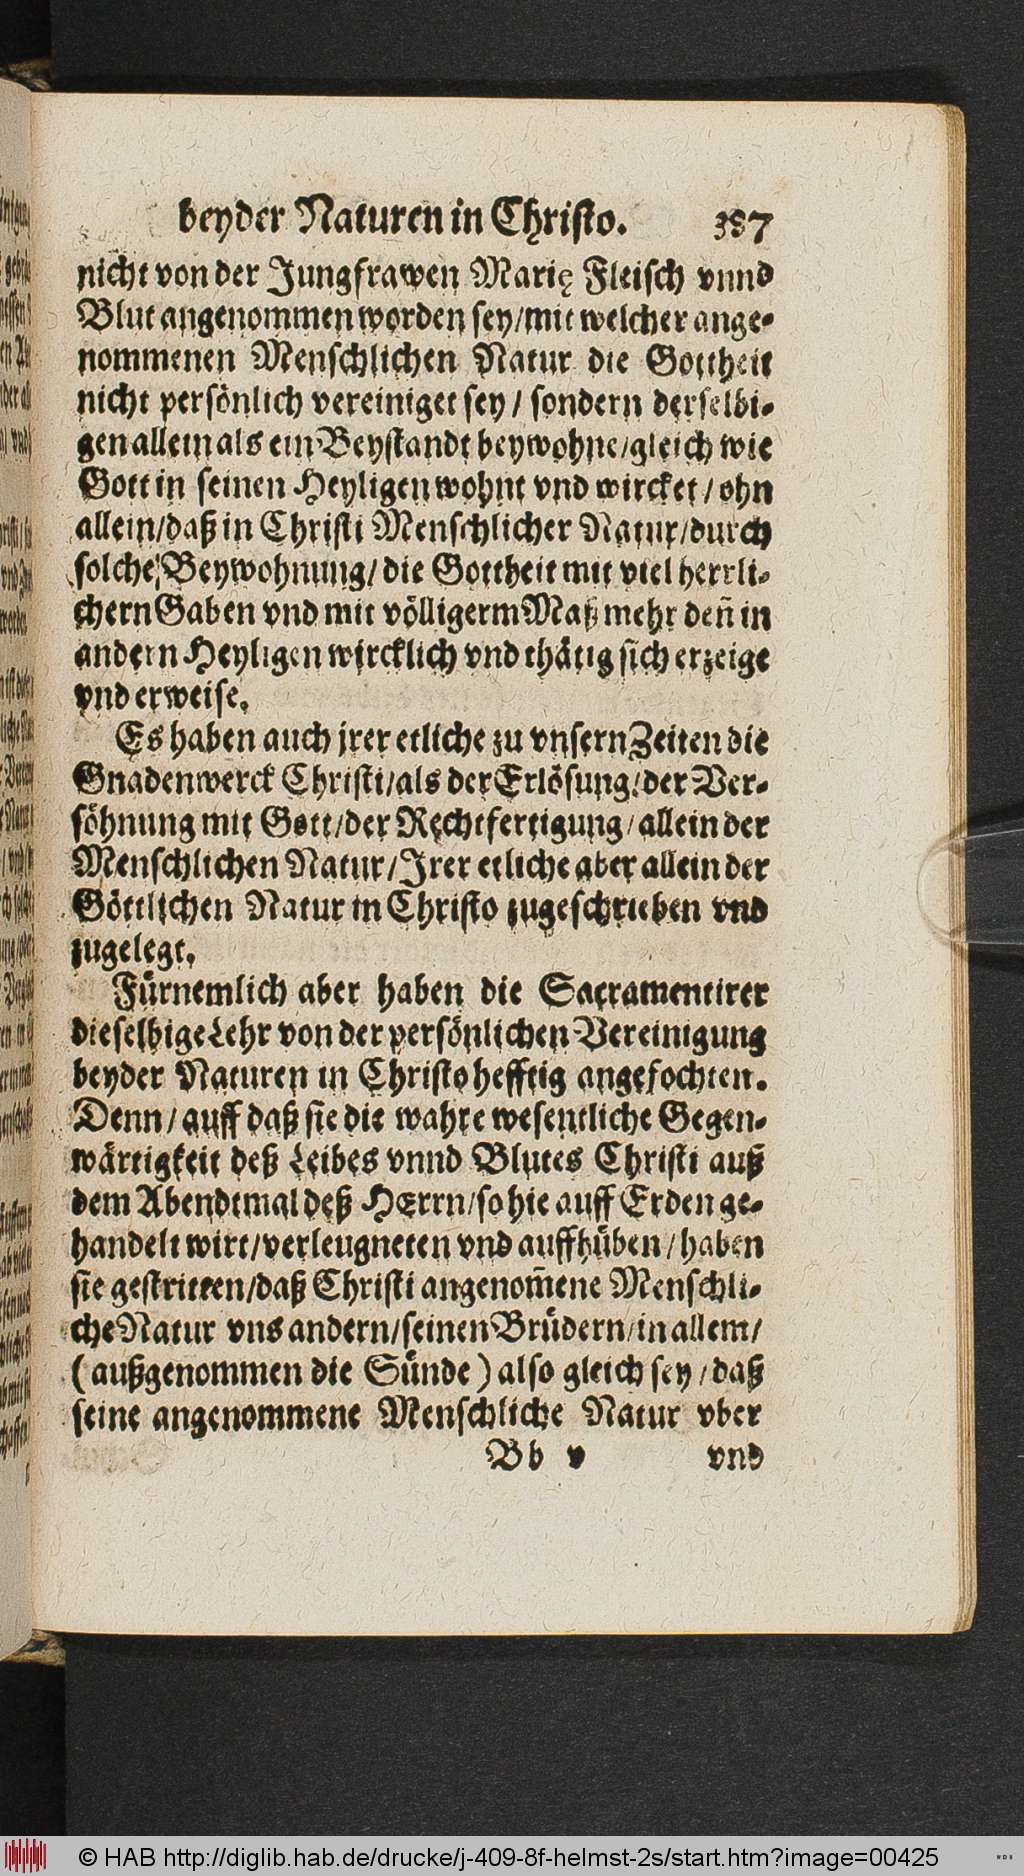 beyder Naturen in Christo. 387
nicht von der Jungfrawen Marię Fleisch vnnd
Blut angenommen worden sey/mit welcher ange-
nommenen Menschlichen Natur die Gottheit
nicht persönlich vereiniget sey/ sondern derselbi-
gen allein als ein Beystandt beywohne/gleich wie
Gott in seinen Heyligen wohnt vnd wircket/ohn
allein/daß in Christi Menschlicher Natur/durch
solche Beywohnung/die Gottheit mit viel herrli-
chern Gaben vnd mit völligerm Maß mehr deñ in
andern Heyligen wircklich vnd thätig sich erzeige
vnd erweise.
Es haben auch jrer etliche zu vnsern Zeiten die
Gnadenwerck Christi/als der Erlösung/der Ver-
söhnung mit Gott/der Rechtfertigung/allein der
Menschlichen Natur/Irer etliche aber allein der
Göttlichen Natur in Christo zugeschrieben vnd
zugelegt.
Fürnemlich aber haben die Sacramentirer
dieselbige Lehr von der persönlichen Vereinigung
beyder Naturen in Christo hefftig angefochten.
Denn/auff daß sie die wahre wesentliche Gegen-
wärtigkeit deß Leibes vnnd Blutes Christi auß
dem Abendtmal deß HErrn/so hie auff Erden ge-
handelt wirt/verleugneten vnd auffhüben/haben
sie gestritten/daß Christi angenom̃ene Menschli-
che Natur vns andern/seinen Brüdern/in allem/
(außgenommen die Sünde) also gleich sey/daß
seine angenommene Menschliche Natur vber
Bb v vnd
© HAB http://diglib.hab.de/drucke/j-409-8f-helmst-2s/start.htm?image=00425